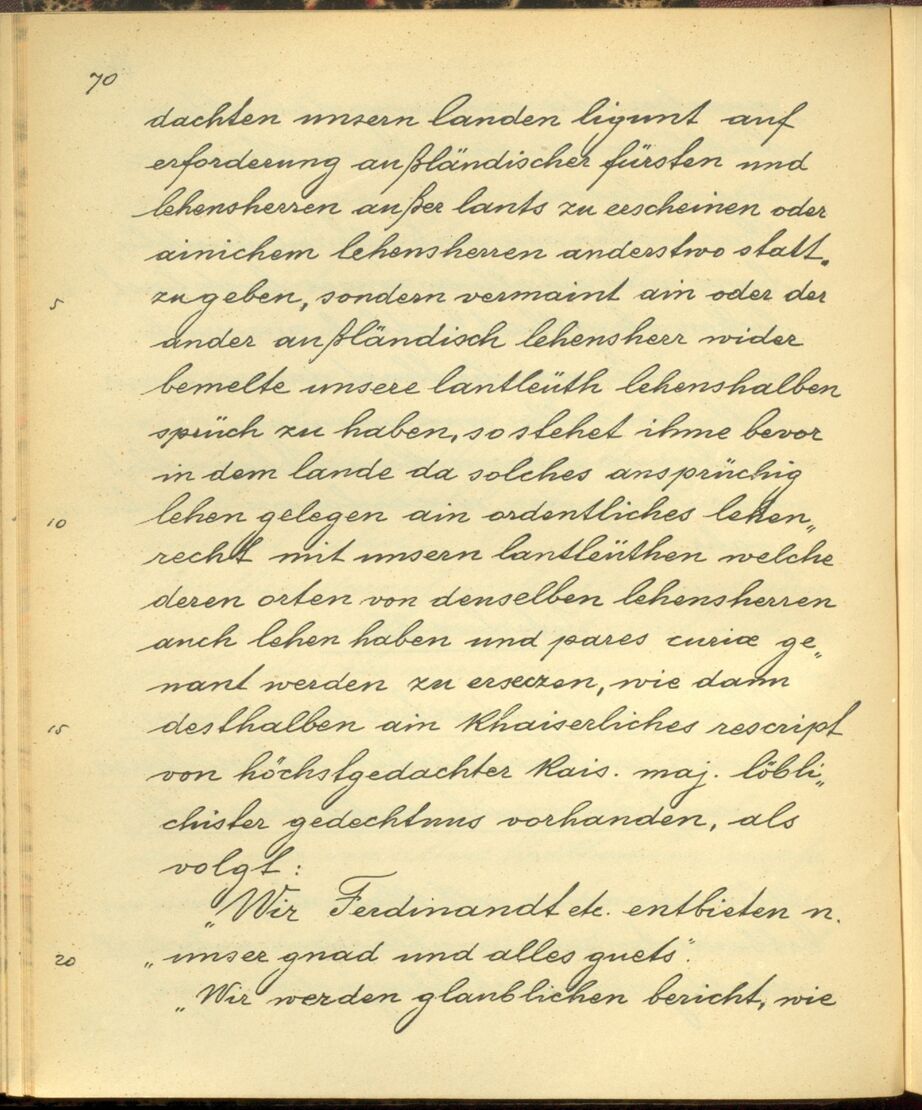 70
dachten unsern landen ligunt auf
erforderung außländischer fürsten und
lehensherren außer lants zu erscheinen oder
ainichem lehensherren anderstwo statt„
5 zu geben, sondern vermaint ain oder der
ander außländisch lehensherr wider
bemelte unsere lantleüth lehenshalben
sprüch zu haben, so stehet ihme bevor
in dem lande da solches ansprüchig
10 lehen gelegen ain ordentliches lehen„
recht mit unsern lantleüthen welche
deren orten von denselben lehensherren
auch lehen haben und pares curiæ ge„
nant werden zu erseczen, wie dann
15 desthalben ain khaiserliches rescript
von höchstgedachter kais. maj. löbli„
chister gedechtnus vorhanden, als
volgt:
„Wir Ferdinandt etc. entbieten n.
20 „unser gnad und alles guets“.
„Wir werden glaublichen bericht, wie